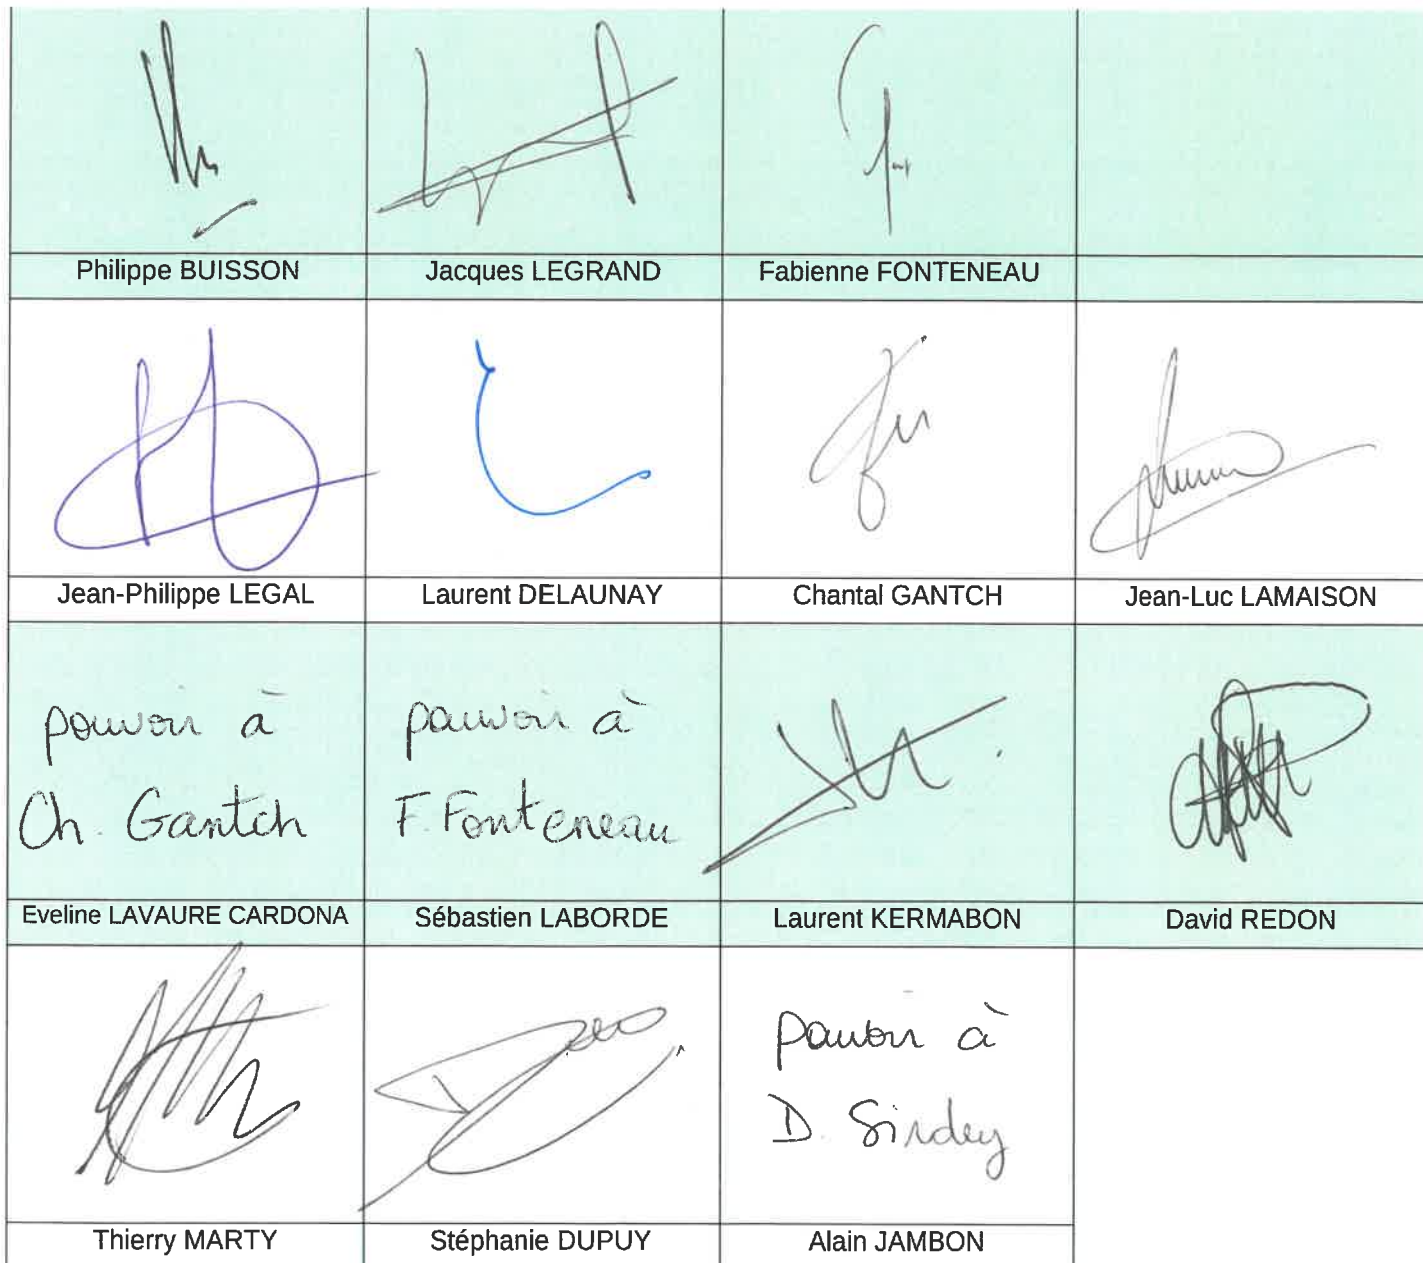 Philippe BUISSON
Jacques LEGRAND
Fabienne FONTENEAU
Jean-Philippe LEGAL
Laurent DELAUNAY
Chantal GANTCH
Jean-Luc LAMAISON
pouvoir à
Ch. Gantch
pouvoir à
F. Fonteneau
Eveline LAVAURE CARDONA
Sébastien LABORDE
Laurent KERMABON
David REDON
pouvoir à
D. Sirdey
Thierry MARTY
Stéphanie DUPUY
Alain JAMBON